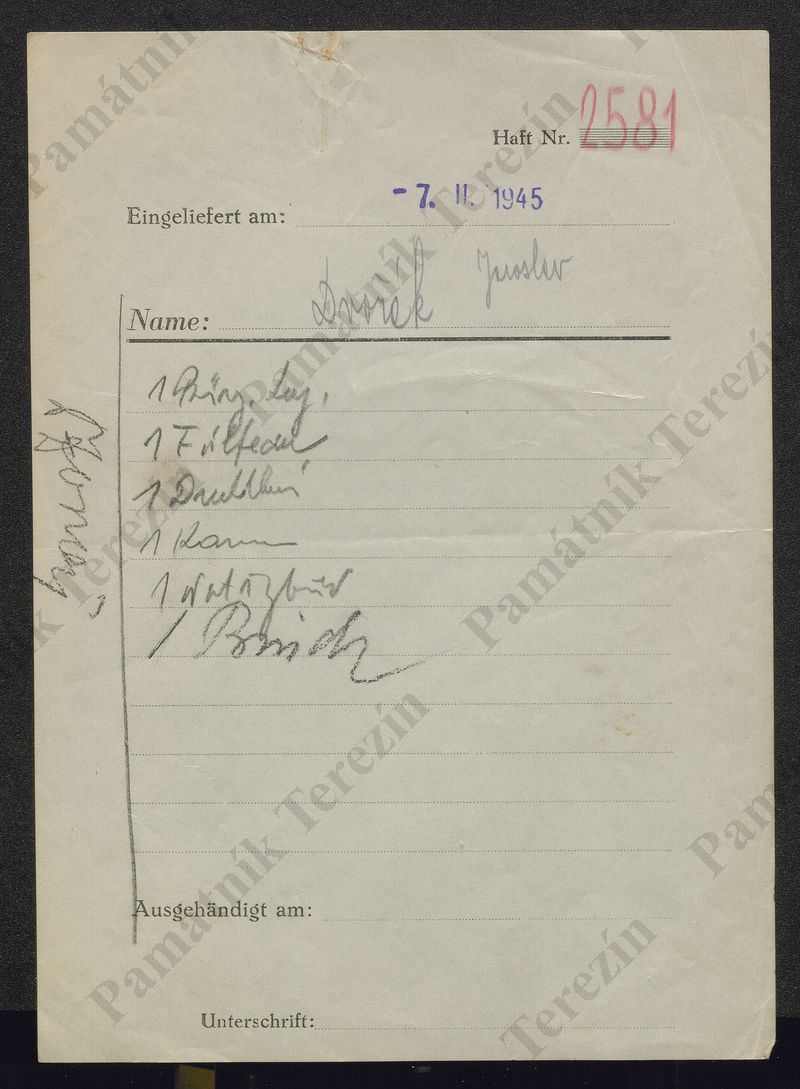 Haft Nr. 2581
Eingeliefert am: - 7. II. 1945
Name: Dvořák Jaroslav
1 Bürg. Leg.
1 Füllfeder
1
1 Kamm
1 Notizbuch
1
Ausgehändigt am:
Unterschrift:
Památník Terezín